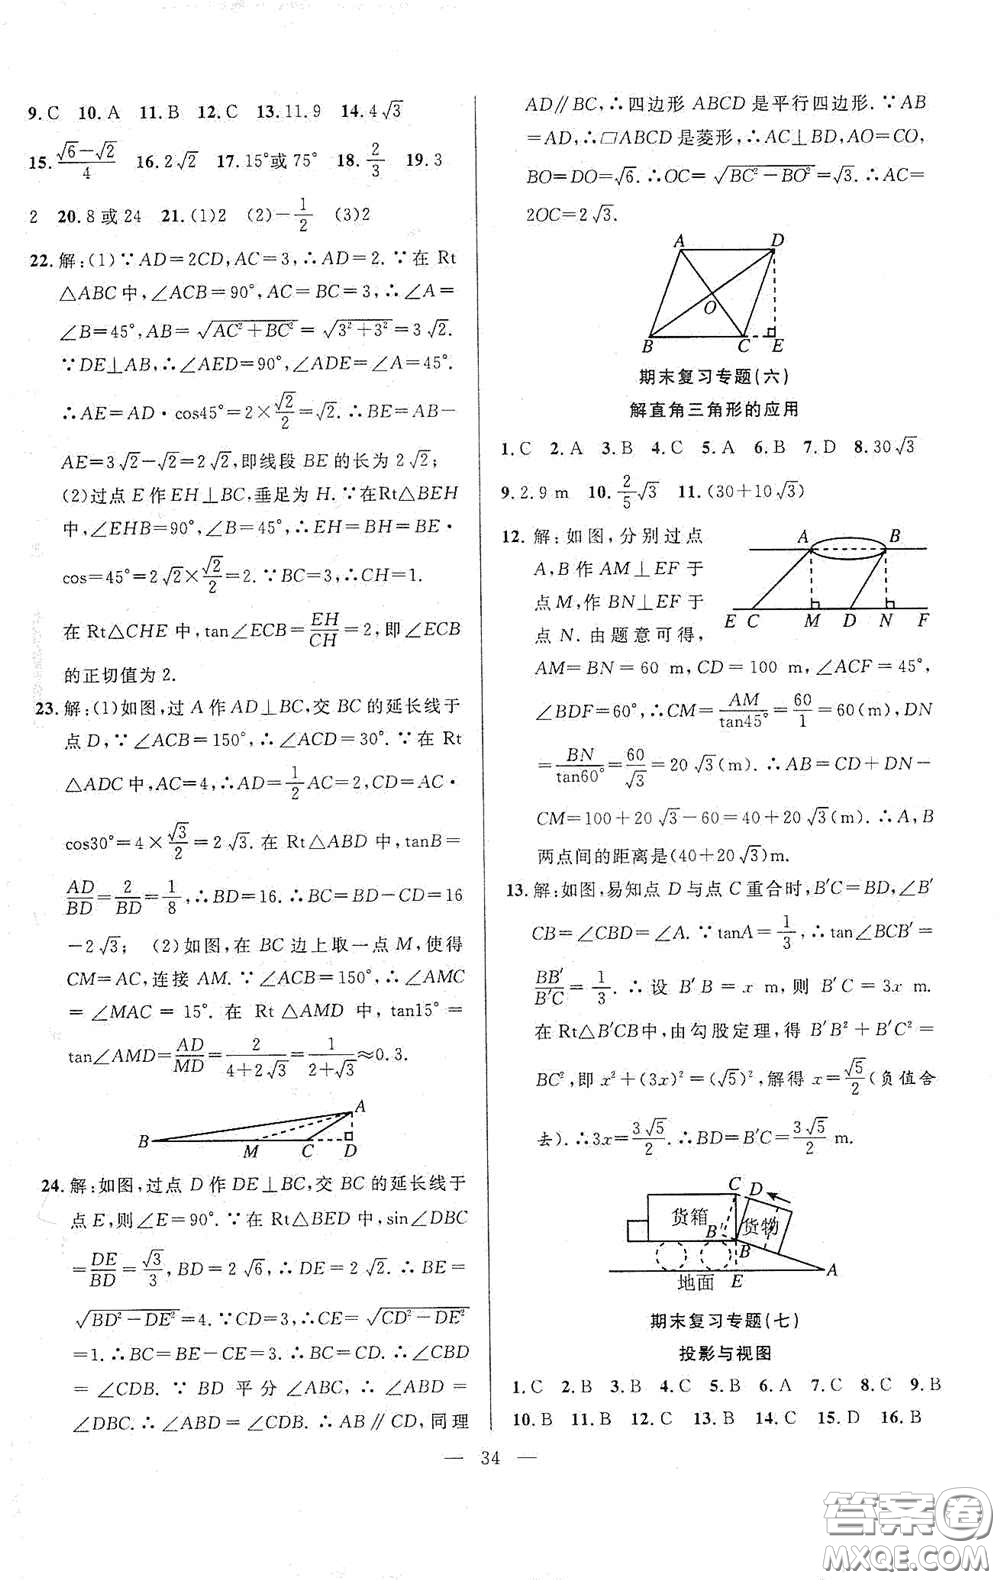 9. C 10. A 11. B 12. C 13. 11.9 14. 4√3
15. (√6−√2)/4 16. 2√2 17. 15°或 75° 18. 2/3 19. 3
2 20. 8 或 24 21. (1)2 (2)−1/2 (3)2
22. 解:(1)∵AD=2CD,AC=3,∴AD=2.∵在 Rt
△ABC 中,∠ACB=90°,AC=BC=3,∴∠A=
∠B=45°,AB=√(AC²+BC²)=√(3²+3²)=3√2.
∵DE⊥AB,∴∠AED=90°,∠ADE=∠A=45°.
∴AE=AD·cos45°=2×√2/2=√2.∴BE=AB−
AE=3√2−√2=2√2,即线段 BE 的长为 2√2;
(2)过点 E 作 EH⊥BC,垂足为 H.∵在Rt△BEH
中,∠EHB=90°,∠B=45°,∴EH=BH=BE·
cos=45°=2√2×√2/2=2.∵BC=3,∴CH=1.
在 Rt△CHE 中,tan∠ECB=EH/CH=2,即∠ECB
的正切值为 2.
23. 解:(1)如图,过 A 作 AD⊥BC,交 BC 的延长线于
点 D,∵∠ACB=150°,∴∠ACD=30°.∵在 Rt
△ADC 中,AC=4,∴AD=1/2AC=2,CD=AC·
cos30°=4×√3/2=2√3.在 Rt△ABD 中,tanB=
AD/BD=2/BD=1/8,∴BD=16.∴BC=BD−CD=16
−2√3; (2)如图,在 BC 边上取一点 M,使得
CM=AC,连接 AM.∵∠ACB=150°,∴∠AMC
=∠MAC=15°.在 Rt△AMD 中,tan15°=
tan∠AMD=AD/MD=2/(4+2√3)=1/(2+√3)≈0.3.
A
B M C D
24. 解:如图,过点 D 作 DE⊥BC,交 BC 的延长线于
点 E,则∠E=90°.∵在 Rt△BED 中,sin∠DBC
=DE/BD=√3/3,BD=2√6,∴DE=2√2.∴BE=
√(BD²−DE²)=4.∵CD=3,∴CE=√(CD²−DE²)
=1.∴BC=BE−CE=3.∴BC=CD.∴∠CBD
=∠CDB.∵BD 平分∠ABC,∴∠ABD=
∠DBC.∴∠ABD=∠CDB.∴AB∥CD,同理
AD∥BC,∴四边形 ABCD 是平行四边形.∵AB
=AD,∴□ABCD 是菱形,∴AC⊥BD,AO=CO,
BO=DO=√6.∴OC=√(BC²−BO²)=√3.∴AC=
2OC=2√3.
A D
O
B C E
期末复习专题(六)
解直角三角形的应用
1. C 2. A 3. B 4. C 5. A 6. B 7. D 8. 30√3
9. 2.9 m 10. 2/5√3 11. (30+10√3)
12. 解:如图,分别过点
A,B 作 AM⊥EF 于
点 M,作 BN⊥EF 于
点 N.由题意可得,
A B
E C M D N F
AM=BN=60 m,CD=100 m,∠ACF=45°,
∠BDF=60°,∴CM=AM/tan45°=60/1=60(m),DN
=BN/tan60°=60/√3=20√3(m).∴AB=CD+DN−
CM=100+20√3−60=40+20√3(m).∴A,B
两点间的距离是(40+20√3)m.
13. 解:如图,易知点 D 与点 C 重合时,B′C=BD,∠B′
CB=∠CBD=∠A.∵tanA=1/3,∴tan∠BCB′=
BB′/B′C=1/3.∴设 B′B=x m,则 B′C=3x m.
在Rt△B′CB中,由勾股定理,得 B′B²+B′C²=
BC²,即 x²+(3x)²=(√5)²,解得 x=√5/2(负值舍
去).∴3x=3√5/2.∴BD=B′C=3√5/2 m.
C D
货箱 B′ 货物
B
地面 E A
期末复习专题(七)
投影与视图
1. C 2. B 3. B 4. C 5. B 6. A 7. C 8. C 9. B
10. B 11. B 12. C 13. B 14. C 15. D 16. B
— 34 —
答案卷
MXQE.COM